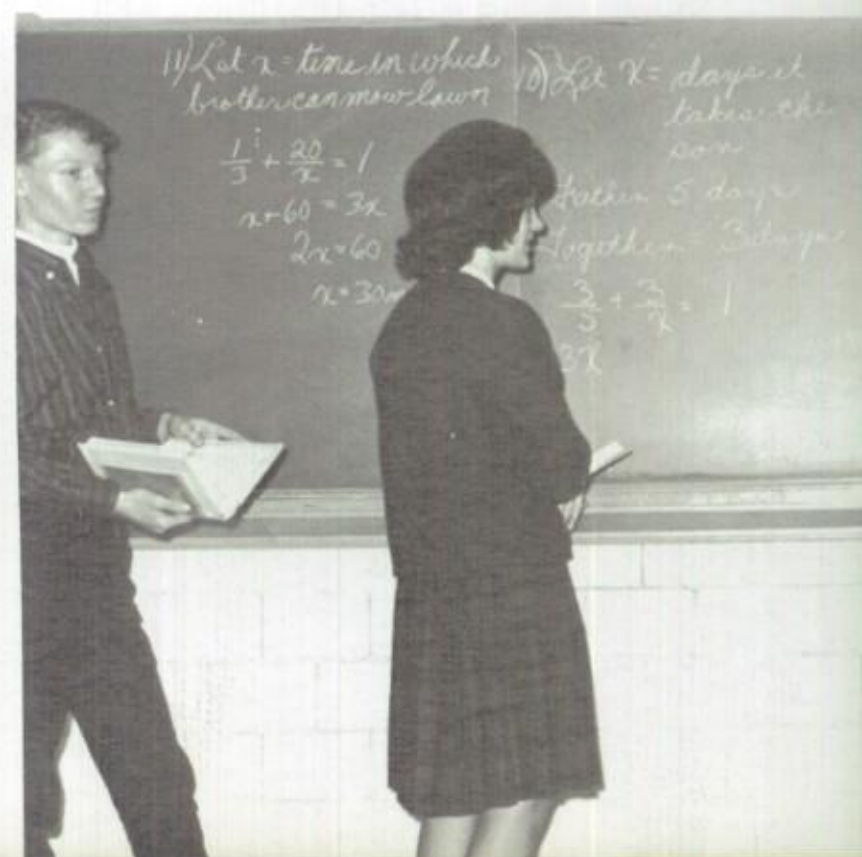 11) Let x = time in which
brother can mow lawn
1/3 + 20/x = 1
x + 60 = 3x
2x = 60
x = 30m
10) Let X = days it
takes the
son
Father 5 days
Together = 3 days
3/5 + 3/x = 1
3X